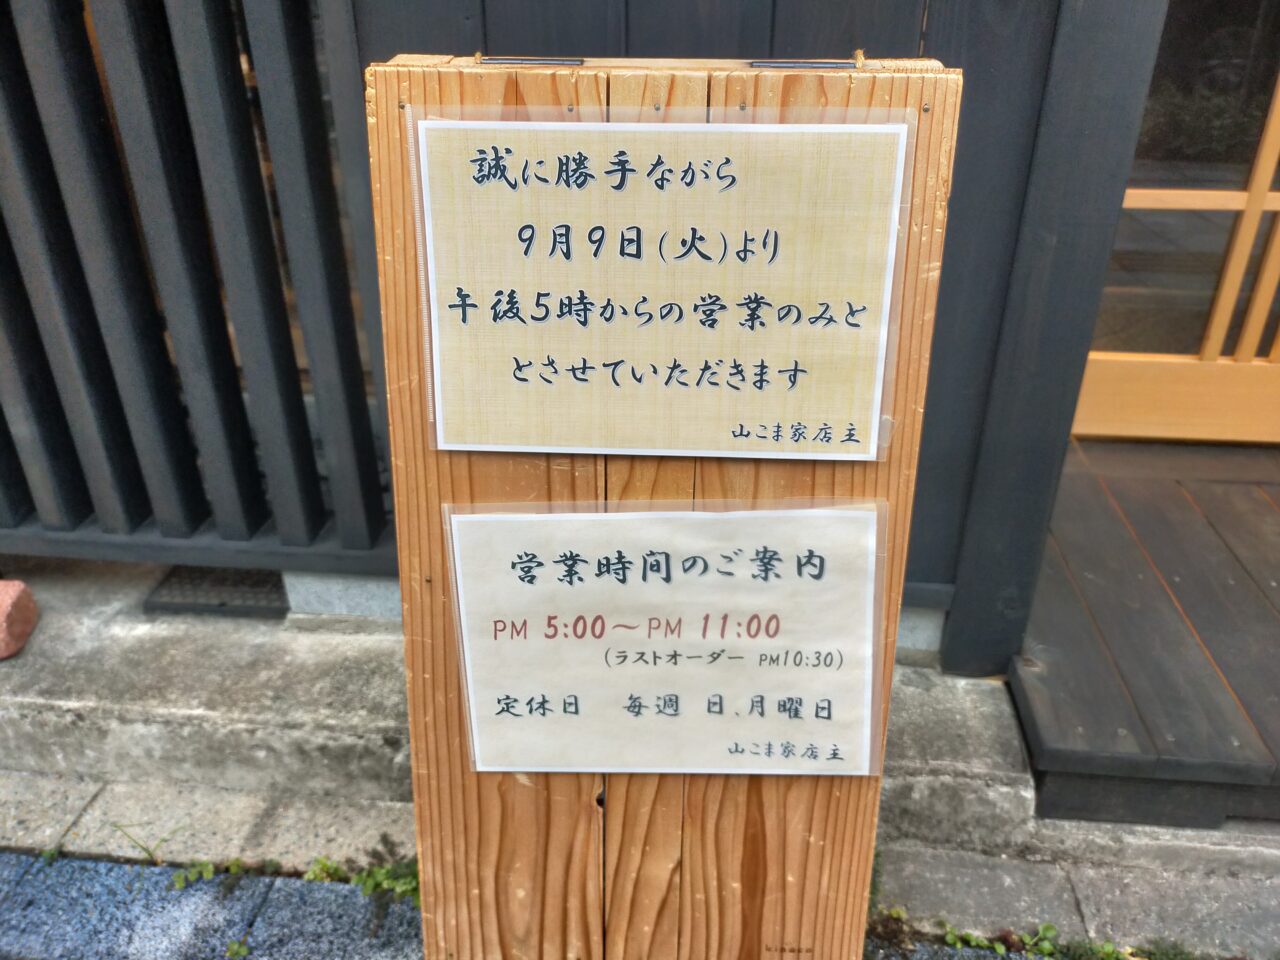 誠に勝手ながら
9月9日(火)より
午後5時からの営業のみと
とさせていただきます
山こま家店主
営業時間のご案内
PM 5:00～PM 11:00
(ラストオーダー PM10:30)
定休日 毎週 日、月曜日
山こま家店主